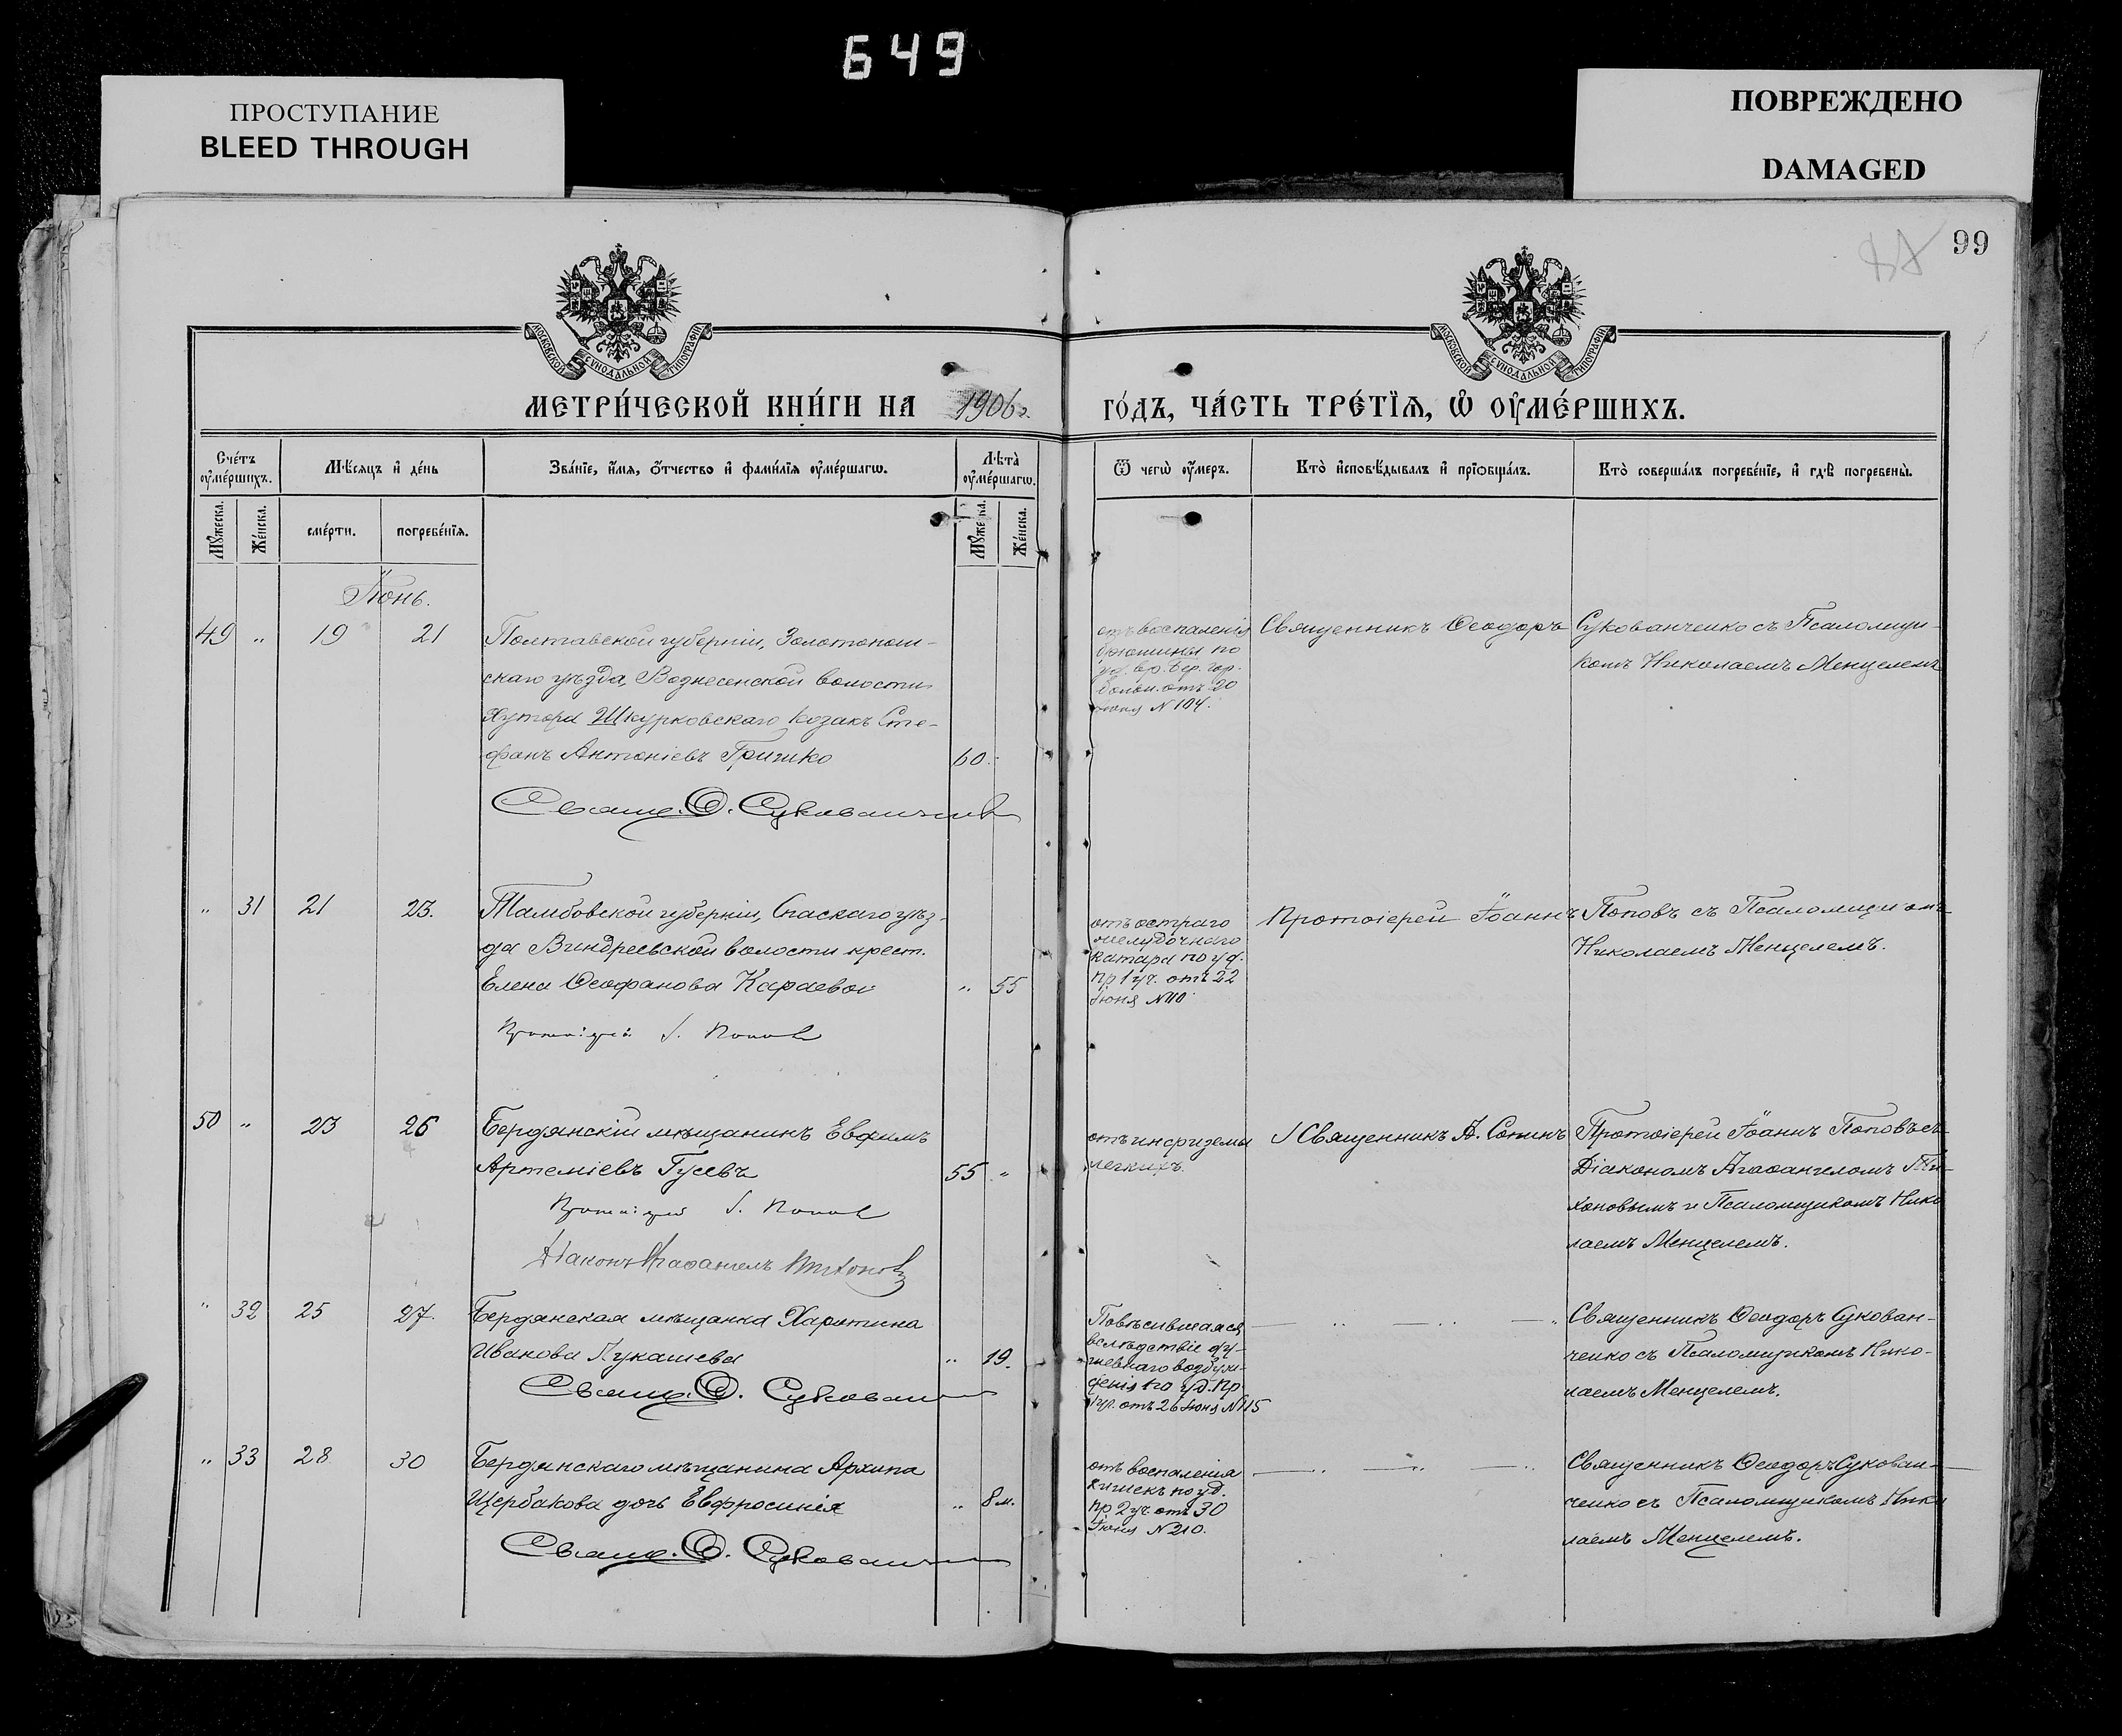 649
ПРОСТУПАНИЕ
BLEED THROUGH
ПОВРЕЖДЕНО
DAMAGED
99
МОСКОВСКОЙ СѴНОДАЛЬНОЙ ТИПОГРАФІИ
МОСКОВСКОЙ СѴНОДАЛЬНОЙ ТИПОГРАФІИ
МЕТРИ́ЧЕСКОЙ КНИ́ГИ НА 1906 г. ГО́ДЪ, ЧА́СТЬ ТРЕ́ТЇѦ, Ѽ ОУ҆МЕ́РШИХЪ.
Сче́тъ оу҆ме́ршихъ.
Мѣ́сяцъ и҆ де́нь
Зва́нїе, и҆́мѧ, ѻ҆́тчество и҆ фами́лїѧ оу҆ме́ршагѡ.
Лѣта̀ оу҆ме́ршагѡ.
Ѿ чегѡ̀ оу҆́меръ.
Кто̀ и҆сповѣ́дывалъ и҆ прїѻбща́лъ.
Кто̀ соверша́лъ погребе́нїе, и҆ гдѣ̀ погребены̀.
Мꙋ́жеска.
Же́нска.
сме́рти.
погребе́нїѧ.
Мꙋ́жеска.
Же́нска.
Іюнь.
49 " 19 21
Полтавской губерніи, Золотонош-
скаго уѣзда, Вознесенской волости
хутора Шкурковскаго козакъ Сте-
фанъ Антоніевъ Гришко 60.
Свящ. Ѳ. Сукованченко
отъ воспаленія
брюшины по
уд. вр. Бер. гор.
больн. отъ 20
іюня № 104.
Священникъ Ѳеодоръ Сукованченко съ Псаломщи-
комъ Николаемъ Менцелемъ
" 31 21 23.
Тамбовской губерніи, Спаскаго уѣз-
да Виндреевской волости крест.
Елена Ѳеофанова Караева " 55
Протоіерей І. Поповъ
отъ остраго
желудочнаго
катара по уд.
пр 1 уч. отъ 22
Іюня № 110.
Протоіерей Іоаннъ Поповъ съ Псаломщикомъ
Николаемъ Менцелемъ.
50 " 23 26
Бердянскій мѣщанинъ Евфимъ
Артеміевъ Гусевъ 55 "
Протоіерей І. Поповъ
Діаконъ Агаѳангелъ Тихоновъ
отъ инфиземы
легкихъ.
Священникъ А. Сопинъ
Протоіерей Іоаннъ Поповъ съ
Діакономъ Агаѳангеломъ Ти-
хоновымъ и Псаломщикомъ Нико
лаемъ Менцелемъ.
" 32 25 27.
Бердянская мѣщанка Харитина
Иванова Лукашева " 19.
Свящ. Ѳ. Сукован
Повѣсившаяся
вслѣдствіе ду-
шевнаго возбуж-
денія по уд. Пр
1 уч. отъ 26 Іюня № 115
Священникъ Ѳеодоръ Сукован-
ченко съ Псаломщикомъ Нико-
лаемъ Менцелемъ.
" 33 28 30
Бердянскаго мѣщанина Архипа
Щербакова дочь Евфросинія " 8 м.
Свящ. Ѳ. Сукованченко
отъ воспаленія
кишекъ по уд.
пр. 2 уч. отъ 30
Іюня № 210.
Священникъ Ѳеодоръ Сукован-
ченко съ Псаломщикомъ Нико
лаемъ Менцелемъ.